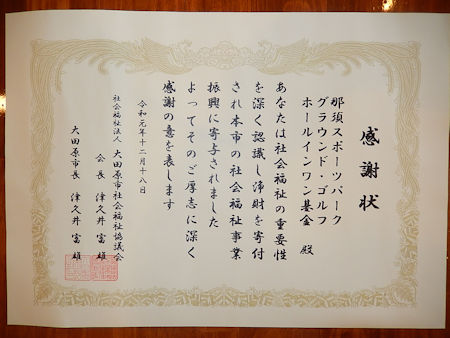 感謝状
那須スポーツパーク
グラウンド・ゴルフ
ホールインワン基金 殿
あなたは社会福祉の重要性
を深く認識し浄財を寄付
され本市の社会福祉事業
振興に寄与されました
よってそのご厚志に深く
感謝の意を表します
令和元年十二月十八日
社会福祉法人 大田原市社会福祉協議会
会長 津久井富雄
大田原市長 津久井富雄